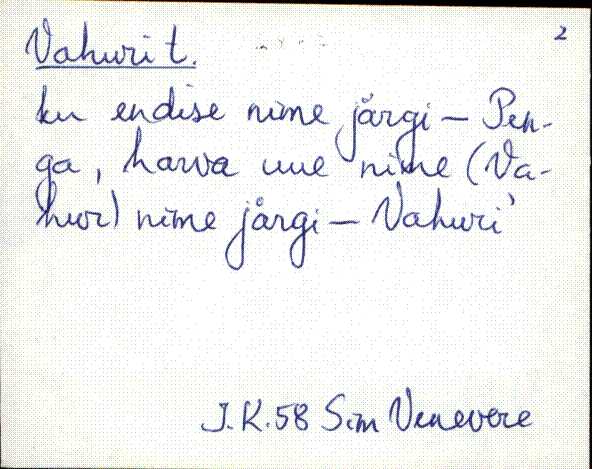 2
Vahuri t.
ku endise nime järgi – Pen-
ga, harva uue nime (Va-
hur) nime järgi – Vahuri'
J.K.58 Sim Venevere